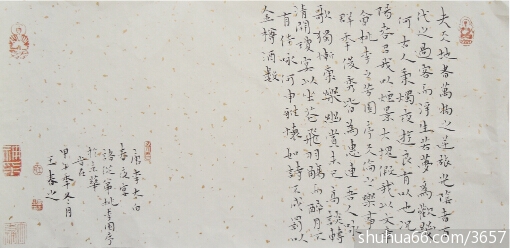 夫天地者萬物之逆旅光陰者百
代之過客而浮生若夢為歡幾
何古人秉燭夜遊良有以也況
陽春召我以煙景大塊假我以文章
會桃李之芳園序天倫之樂事
群季俊秀皆為惠連吾人詠
歌獨慚康樂幽賞未已高談轉
清開瓊筵以坐花飛羽觴而醉月不
有佳詠何申雅懷如詩不成罰以
金樽酒數
唐李太白
春夜宴
諸從弟桃李園序
於京華
甲午年冬月
王春之
shuhua66.com/3657